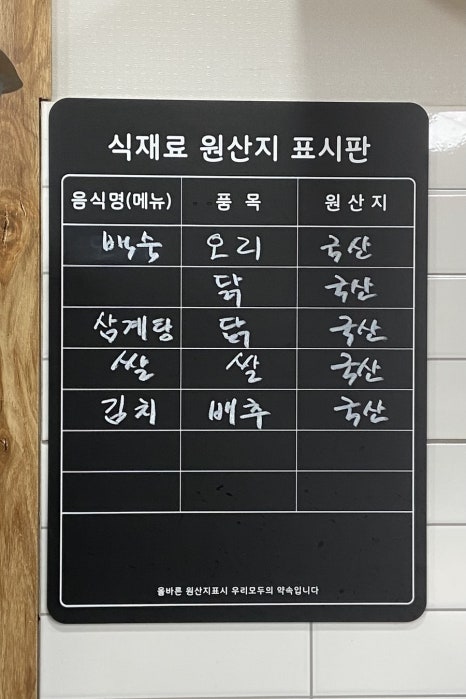 식재료 원산지 표시판
음식명(메뉴) 품 목 원 산 지
백숙 오리 국산
닭 국산
삼계탕 닭 국산
쌀 쌀 국산
김치 배추 국산
올바른 원산지표시 우리모두의 약속입니다